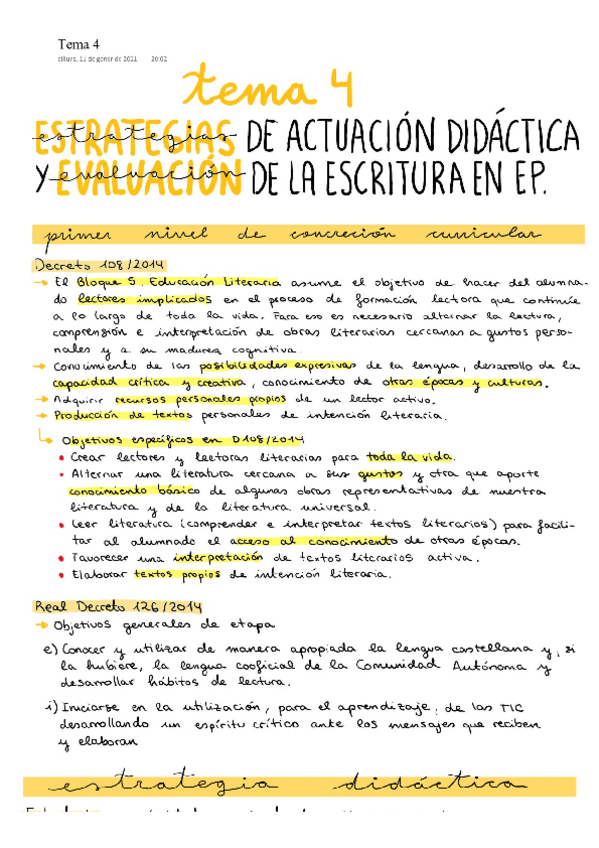 Tema 4
dilluns, 11 de gener de 2021 20:02
tema 4
ESTRATEGIAS estrategias DE ACTUACIÓN DIDÁCTICA
Y EVALUACIÓN evaluación DE LA ESCRITURA EN EP.
primer nivel de concreción curricular
Decreto 108/2014
→ El Bloque 5. Educación Literaria asume el objetivo de hacer del alumna-
do lectores implicados en el proceso de formación lectora que continúe
a lo largo de toda la vida. Para eso es necesario alternar la lectura,
comprensión e interpretación de obras literarias cercanas a gustos perso-
nales y a su madurez cognitiva.
→ Conocimiento de las posibilidades expresivas de la lengua, desarrollo de la
capacidad crítica y creativa, conocimiento de otras épocas y culturas.
→ Adquirir recursos personales propios de un lector activo.
→ Producción de textos personales de intención literaria.
Objetivos específicos en D108/2014
• Crear lectores y lectoras literarias para toda la vida.
• Alternar una literatura cercana a sus gustos y otra que aporte
conocimiento básico de algunas obras representativas de nuestra
literatura y de la literatura universal.
• Leer literatura (comprender e interpretar textos literarios) para facili-
tar al alumnado el acceso al conocimiento de otras épocas.
• Favorecer una interpretación de textos literarios activa.
• Elaborar textos propios de intención literaria.
Real Decreto 126/2014
→ Objetivos generales de etapa
e) Conocer y utilizar de manera apropiada la lengua castellana y, si
la hubiere, la lengua cooficial de la Comunidad Autónoma y
desarrollar hábitos de lectura.
i) Iniciarse en la utilización, para el aprendizaje, de las TIC
desarrollando un espíritu crítico ante los mensajes que reciben
y elaboran
estrategia didáctica